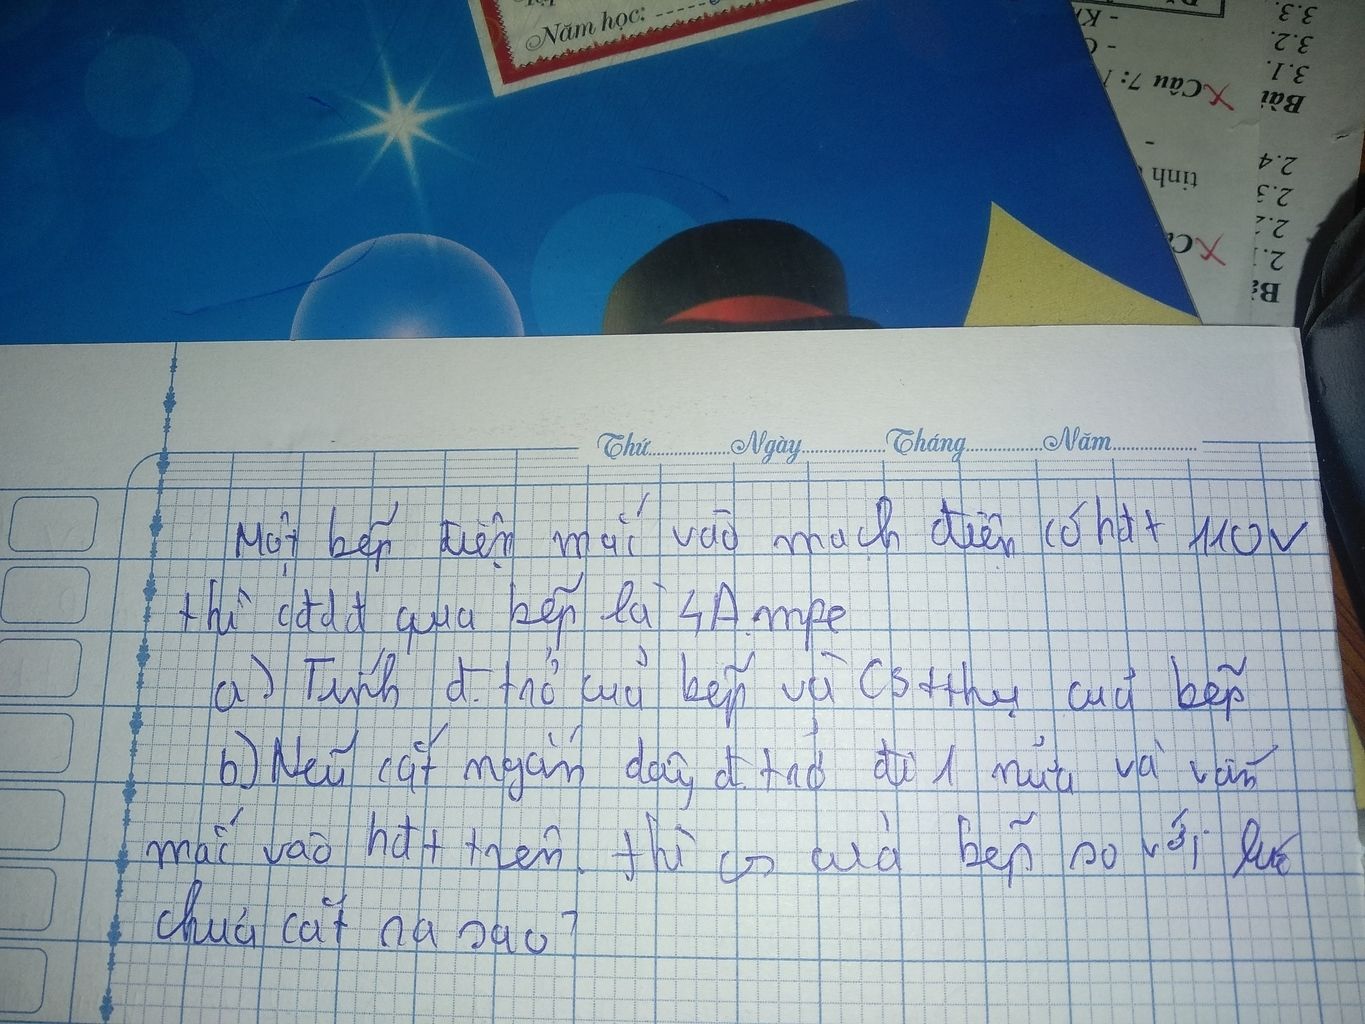 Năm học:
3.3.
3.2.
3.1.
Bài
X Câu 7:
2.4
2.3
2.2
tính
Thứ Ngày Tháng Năm
Một bếp điện mắc vào mạch điện có hđt 110V
thì cđdđ qua bếp là 4 Ampe
a) Tính đ.trở của bếp và CS tthụ của bếp
b) Nếu cắt ngắn dây đ.trở đi 1 nửa và vẫn
mắc vào hđt trên thì cs của bếp so với lúc
chưa cắt ra sao?